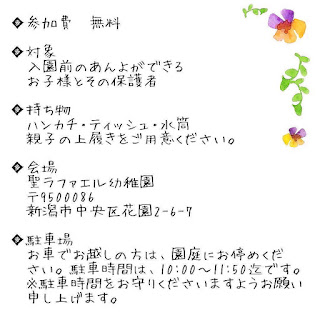 ❖参加費　無料
❖対象
入園前のあんよができる
お子様とその保護者
❖持ち物
ハンカチ・ティッシュ・水筒
親子の上履きをご用意ください。
❖会場
聖ラファエル幼稚園
〒9500086
新潟市中央区花園2-6-7
❖駐車場
お車でお越しの方は、園庭にお停めくだ
さい。駐車時間は、10:00～11:50迄です。
※駐車時間をお守りくださいますようお願い
申し上げます。